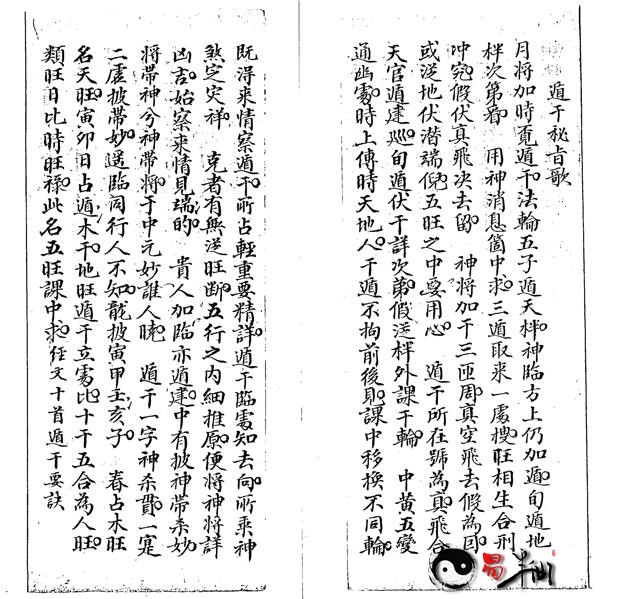 遁干秘旨歌
月將加時覓遁干法輪五子遁天柈神臨方上仍加遁旬遁地
柈次第看　用神消息箇中求三遁取來一處搜旺相生合刑
冲究假伏真飛决去留　神將加干三匝周真空飛去假為囙
或逆地伏潛端倪五旺之中要用心　遁干所在號為真飛合
天官遁建廵旬遁伏干詳次第假逆柈外課干輪　中黃五變
通幽處時上傳時天地人干遁不拘前後則課中移換不同輪
既得来情察遁干所占輕重要精詳遁干臨處知去向所乘神
煞定灾祥　克者有無逆旺断五行之內細推原便將神將詳
凶吉始察来情見端的　貴人加臨亦遁建中有披神帶杀妙
將帶神兮神帶將于中元妙誰人曉　遁干一字神杀貫一寔
二虛披帶妙遥臨同行人不知龍披寅甲玊亥子　春占木旺
名天旺寅卯日占遁木干地旺遁干立處比十干五合為人旺
類旺日比時旺祿此名五旺課中求任文十首遁干要訣
易半仙